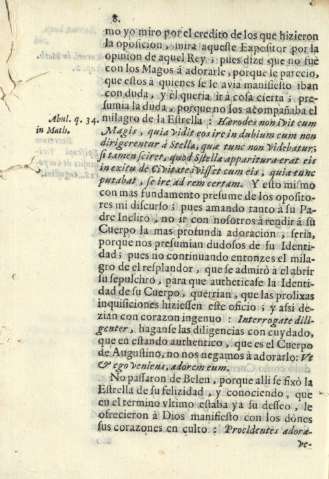 8.
mo yo miro por el credito de los que hizieron
la oposicion, mira aqueste Expositor por la
opinion de aquel Rey; pues dize que no fuè
con los Magos à adorarle, porque le parecio,
que estos à quienes se le avia manifiesto iban
con duda, y el queria ir à cosa cierta; pre-
sumia la duda, porque no los acompañaba el
milagro de la Estrella: Hærodes non ivit cum
Abul. q. 34.
in Math.
Magis, quia vidit eos ire in dubium cum non
dirigerentur à Stella, quæ tunc non videbatur,
si tamen sciret, quod Stella apparitura erat eis
in exitu de Civitate ivisset cum eis, quia tunc
putabat, se ire ad rem certam. Y esto mismo
con mas fundamento presume de los oposito-
res mi discurso; pues amando tanto à su Pa-
dre Inclito, no ir con nosotros à rendir à su
Cuerpo la mas profunda adoracion, seria,
porque nos presumian dudosos de su Identi-
dad; pues no continuando entonces el mila-
gro de el resplandor, que se admirò al abrir
su sepulchro, para que autheticasse la Identi-
dad de su Cuerpo, querian, que las prolixas
inquisiciones hiziessen este oficio; y assi de-
zian con corazon ingenuo: Interrogate dili-
genter, haganse las diligencias con cuydado,
que en estando authentico, que es el Cuerpo
de Augustino, no nos negamos à adorarlo: Vt
& ego veniens, adorem eum.
No passaron de Belen, porque alli se fixò la
Estrella de su felizidad, y conociendo, que
en el termino vltimo estaba ya su desseo, le
ofrecieron à Dios manifiesto con los dones
sus corazones en culto: Procidentes adora-
ve-